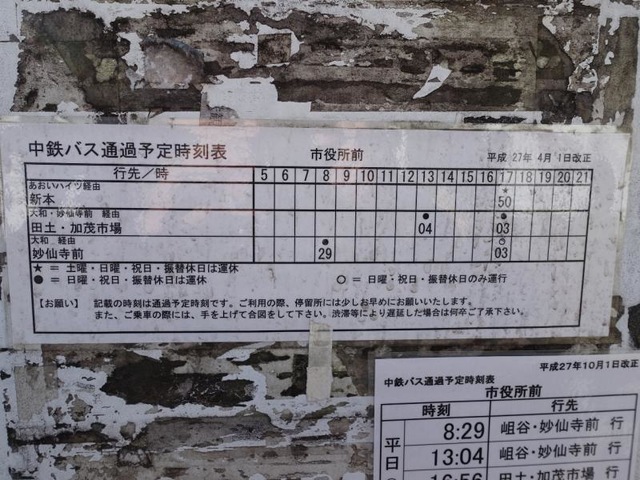 中鉄バス通過予定時刻表 市役所前 平成 27年 4月 1日改正
行先／時 5 6 7 8 9 10 11 12 13 14 15 16 17 18 19 20 21
あおいハイツ経由 ★
新本 50
大和・妙仙寺前 経由 ● ●
田土・加茂市場 04 03
大和 経由 ● ○
妙仙寺前 29 03
★ = 土曜・日曜・祝日・振替休日は運休
● = 日曜・祝日・振替休日は運休 ○ = 日曜・祝日・振替休日のみ運行
【お願い】 記載の時刻は通過予定時刻です。ご利用の際、停留所には少しお早めにお願いいたします。
また、ご乗車の際には、手を上げて合図をして下さい。渋滞等により遅延した場合は何卒ご了承下さい。
平成27年10月1日改正
中鉄バス通過予定時刻表
市役所前
時刻 行先
平日 8:29 岨谷・妙仙寺前 行
13:04 岨谷・妙仙寺前 行
16:56 田土・加茂市場 行